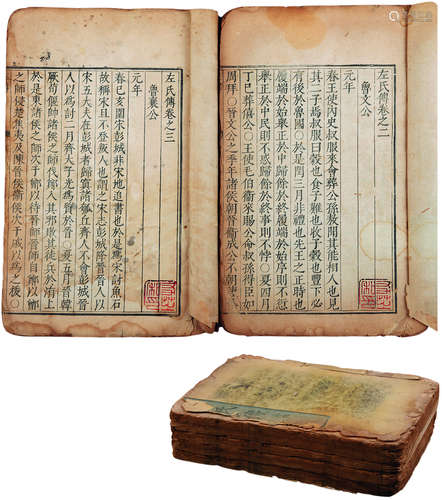 左氏傳卷之三
魯文公
元年
春王使內史叔服來會葬公孫敖聞其能相人也見
其二子焉叔服曰穀也食子難也收子穀也豐下必
有後於魯國○於是閏三月非禮也先王之正時也
履端於始舉正於中歸餘於終履端於始序則不愆
舉正於中民則不惑歸餘於終事則不悖○夏四月
丁巳葬僖公○王使毛伯衛來賜公命叔孫得臣如
周拜○晉文公之季年諸侯朝晉衛成公不朝
左氏傳卷之二
魯襄公
元年
春己亥圍宋彭城非宋地追書也於是為宋討魚石
故稱宋且不登叛人也謂之宋志彭城降晉晉人以
宋五大夫在彭城者歸寘諸瓠丘齊人不會彭城晉
人以為討二月齊大子光為質於晉○夏五月晉韓
厥荀偃帥諸侯之師伐鄭入其郛敗其徒兵於洧上
於是東諸侯之師次于鄫以待晉師晉師自鄭以鄫
之師侵楚焦夷及陳晉侯衛侯次于戚以為之援○